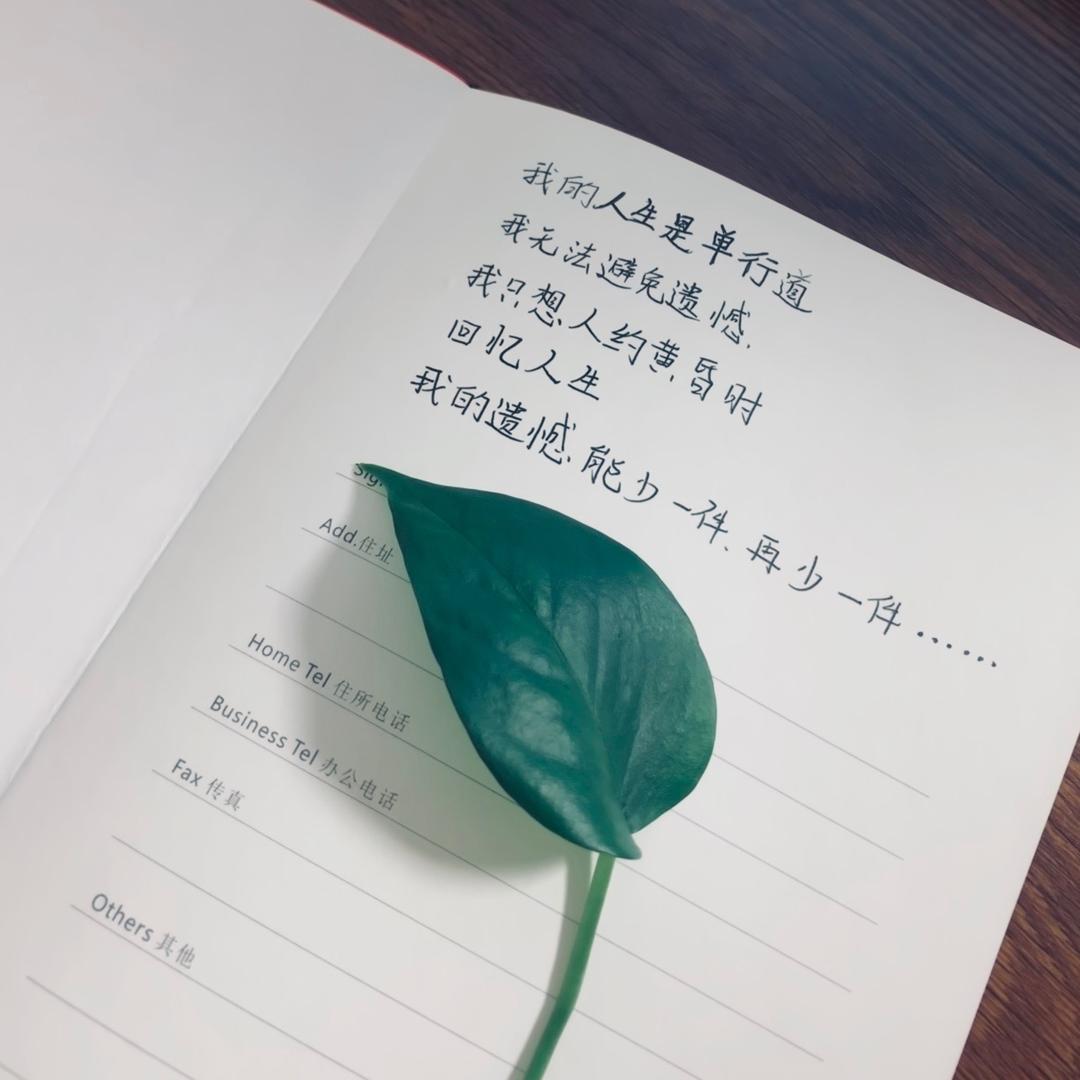 我的人生是单行道
我无法避免遗憾.
我只想人约黄昏时
回忆人生
我的遗憾能少一件、再少一件……
Add.住址
Home Tel 住所电话
Business Tel 办公电话
Fax 传真
Others 其他